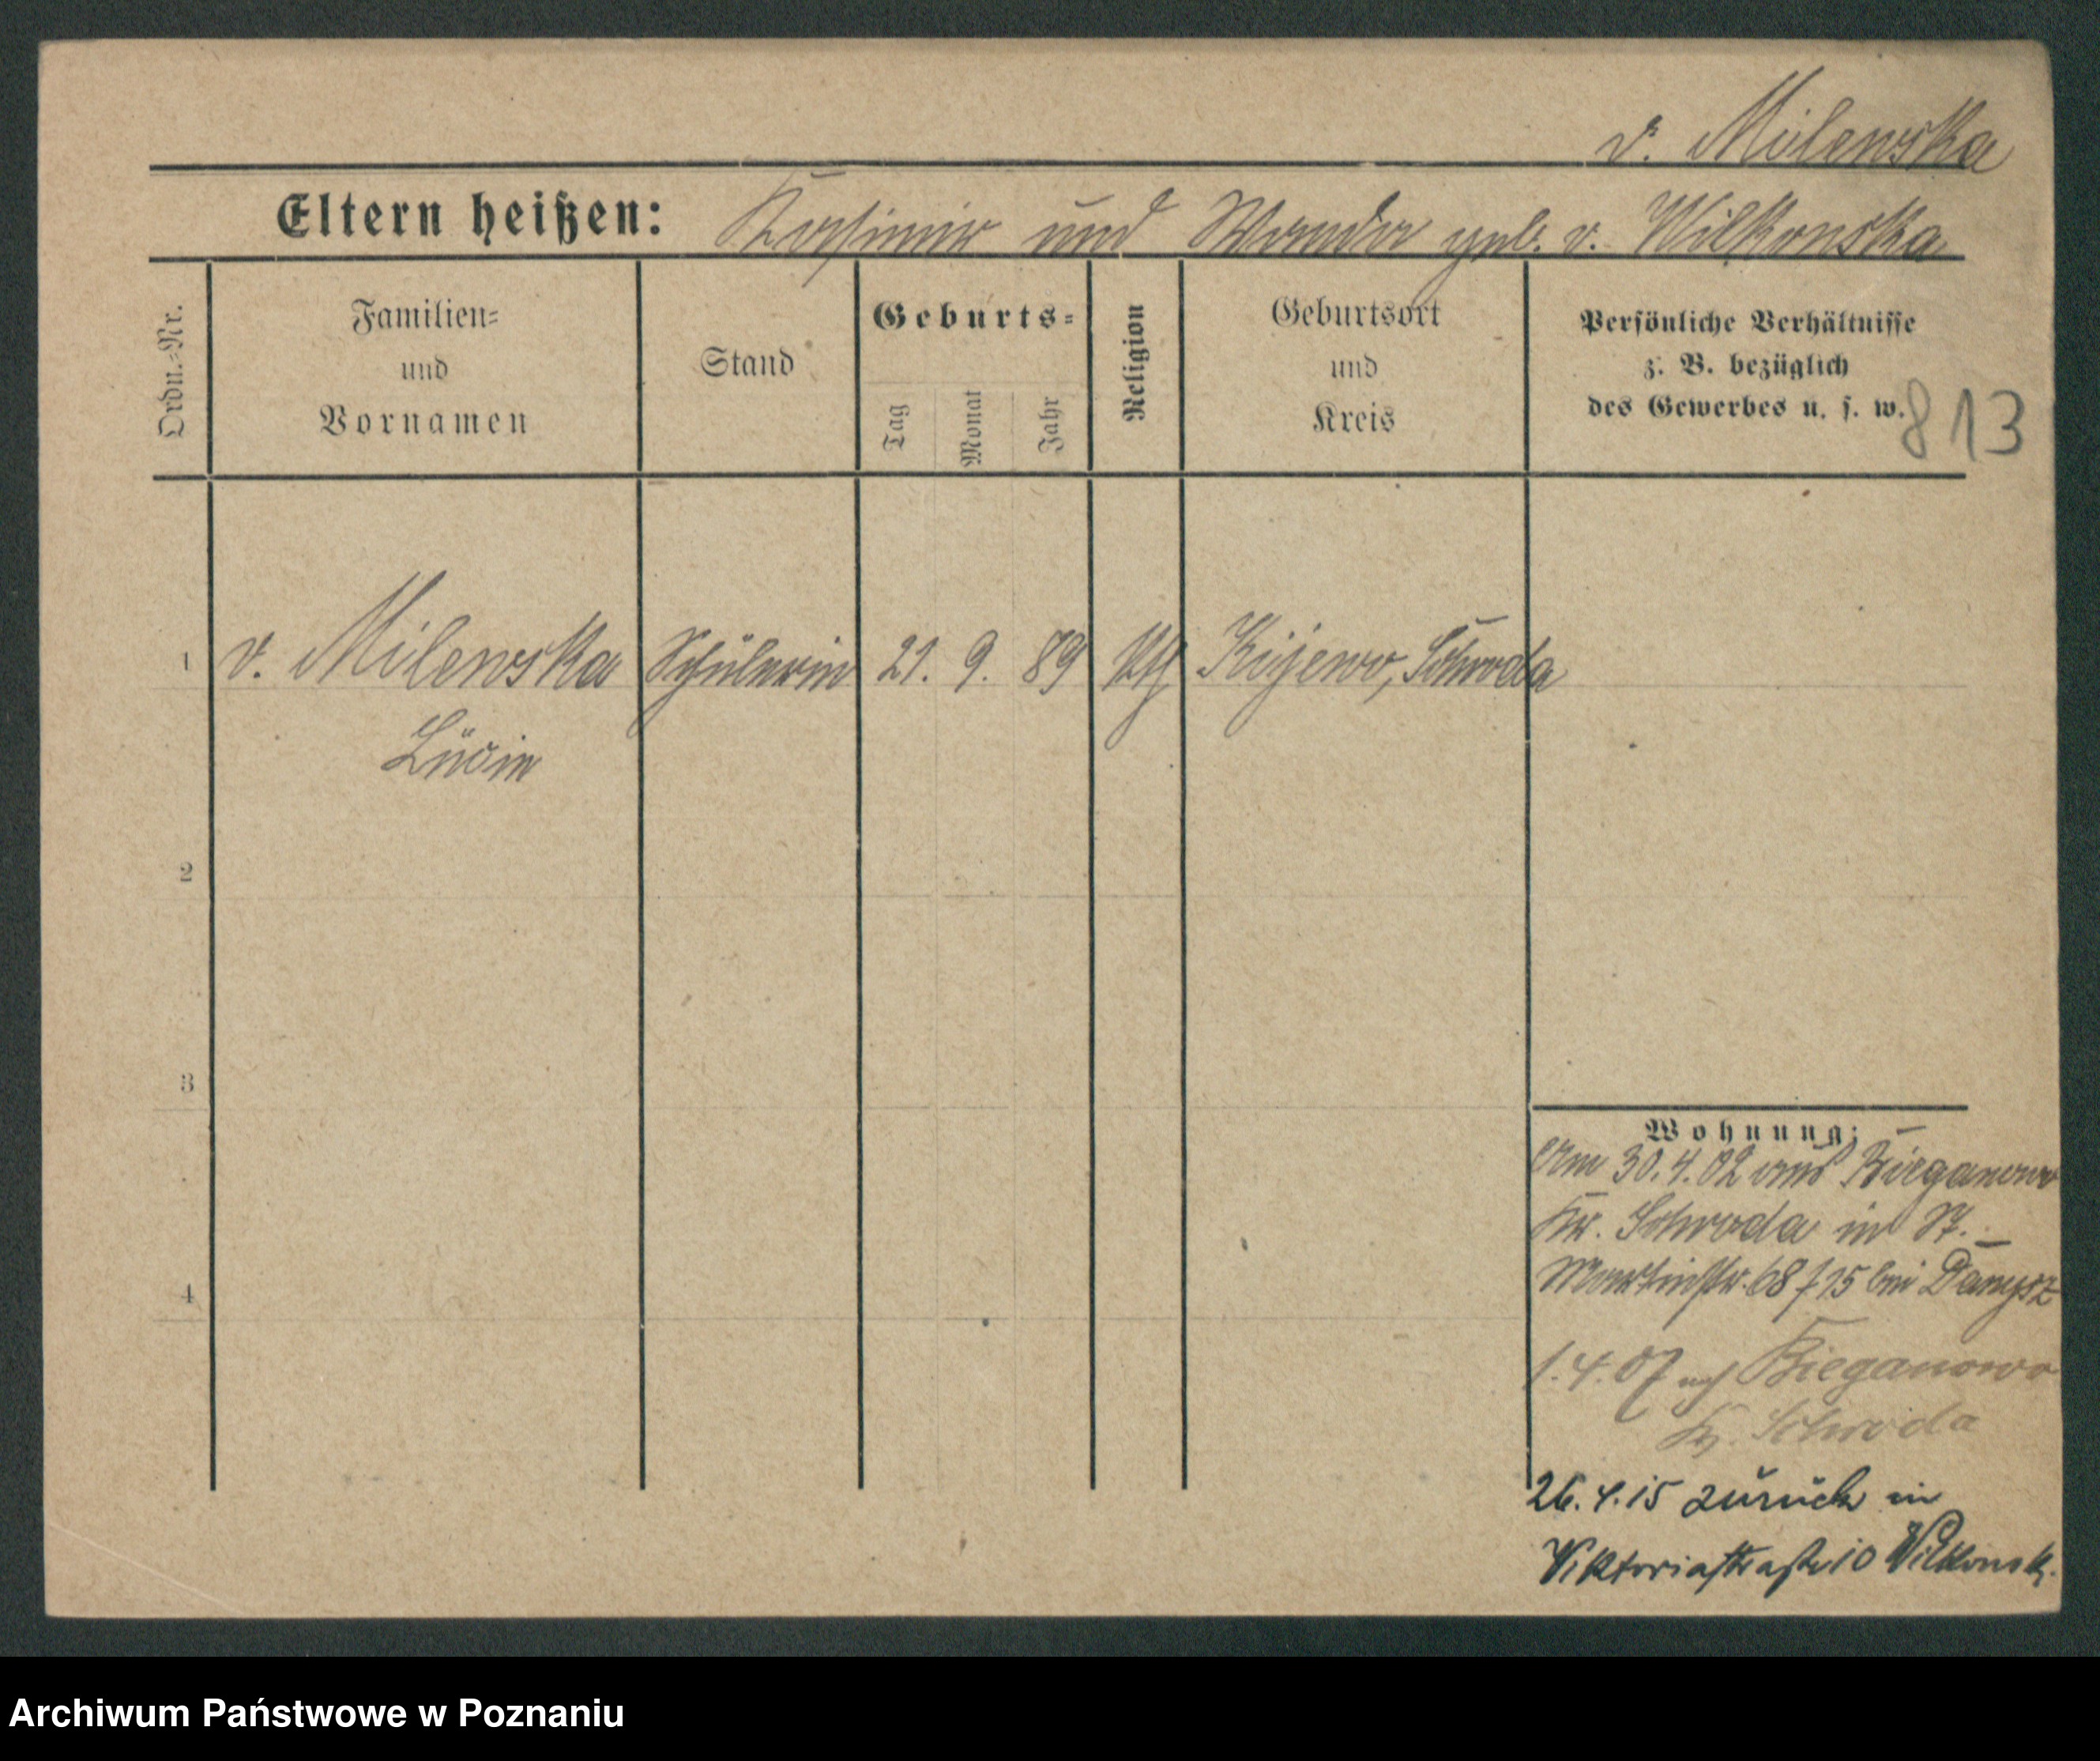 v. Milewska
Eltern heißen: Kasimir und Wanda geb. v. Wilkonska
Ordn.-Nr.
Familien-
und
Vornamen
Stand
Geburts-
Tag
Monat
Jahr
Religion
Geburtsort
und
Kreis
Persönliche Verhältnisse
z. B. bezüglich
des Gewerbes u. s. w.
813
1 v. Milewska Schülerin 21. 9. 89 kth Kijewo, Schroda
Lucie
2
3
4
Wohnung:
Am 30.4.02 aus Bieganowo
Kr. Schroda in St.
Martinstr. 68 bei Danysz
1.4.07 nach Bieganowo
Kr. Schroda
26.4.15 zurück in
Viktoriastraße 10 Wilkonsk.
Archiwum Państwowe w Poznaniu